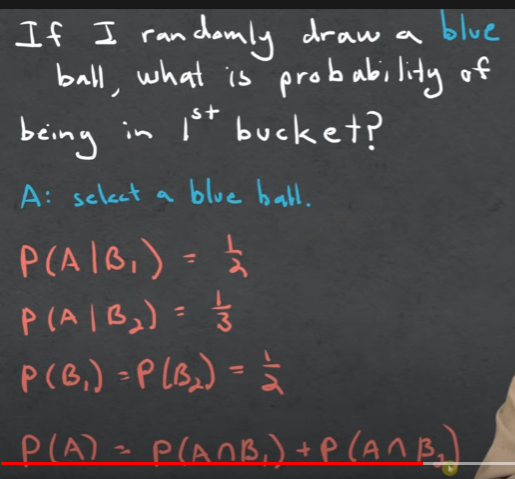 If I randomly draw a blue
ball, what is probability of
being in 1st bucket?
A: select a blue ball.
P(A|B₁) = 1/2
P(A|B₂) = 1/3
P(B₁) = P(B₂) = 1/2
P(A) = P(A∩B₁) + P(A∩B₂)